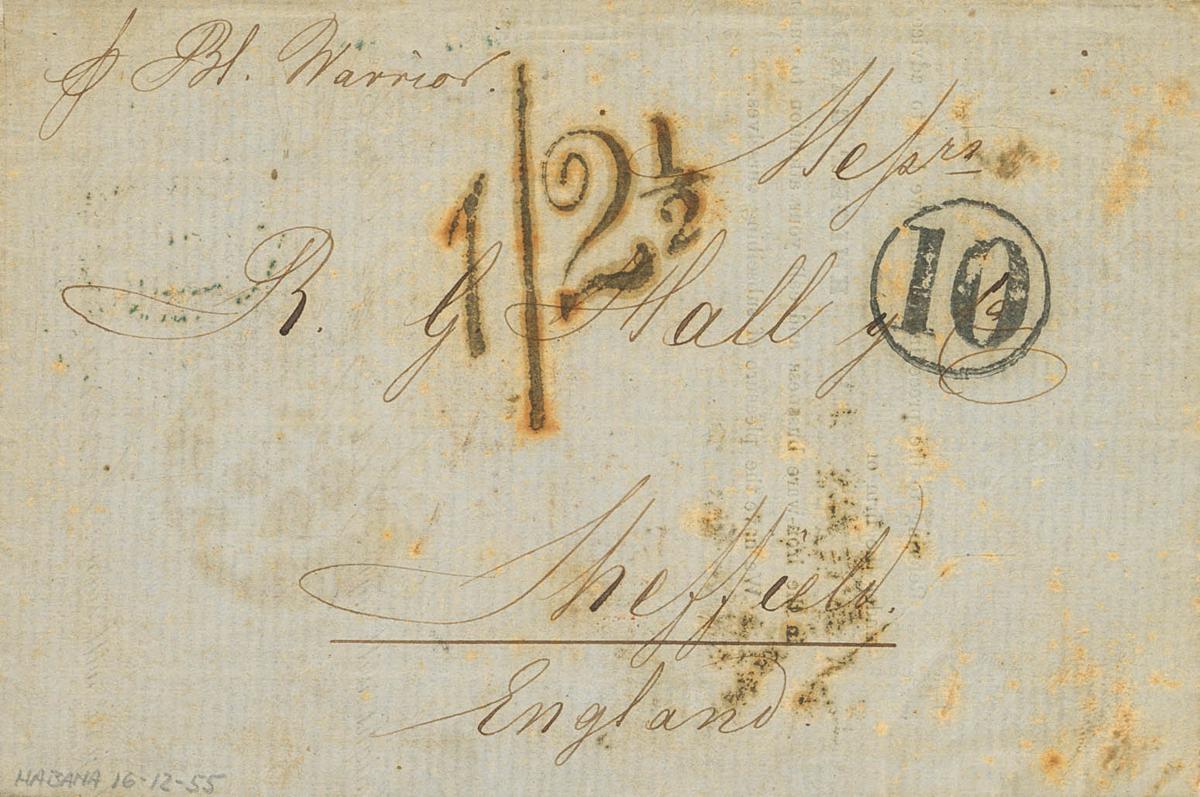 p Bl. Warrior.
1/2½
Messrs
10
R. G Hall y
Sheffield.
England
HABANA 16-12-55